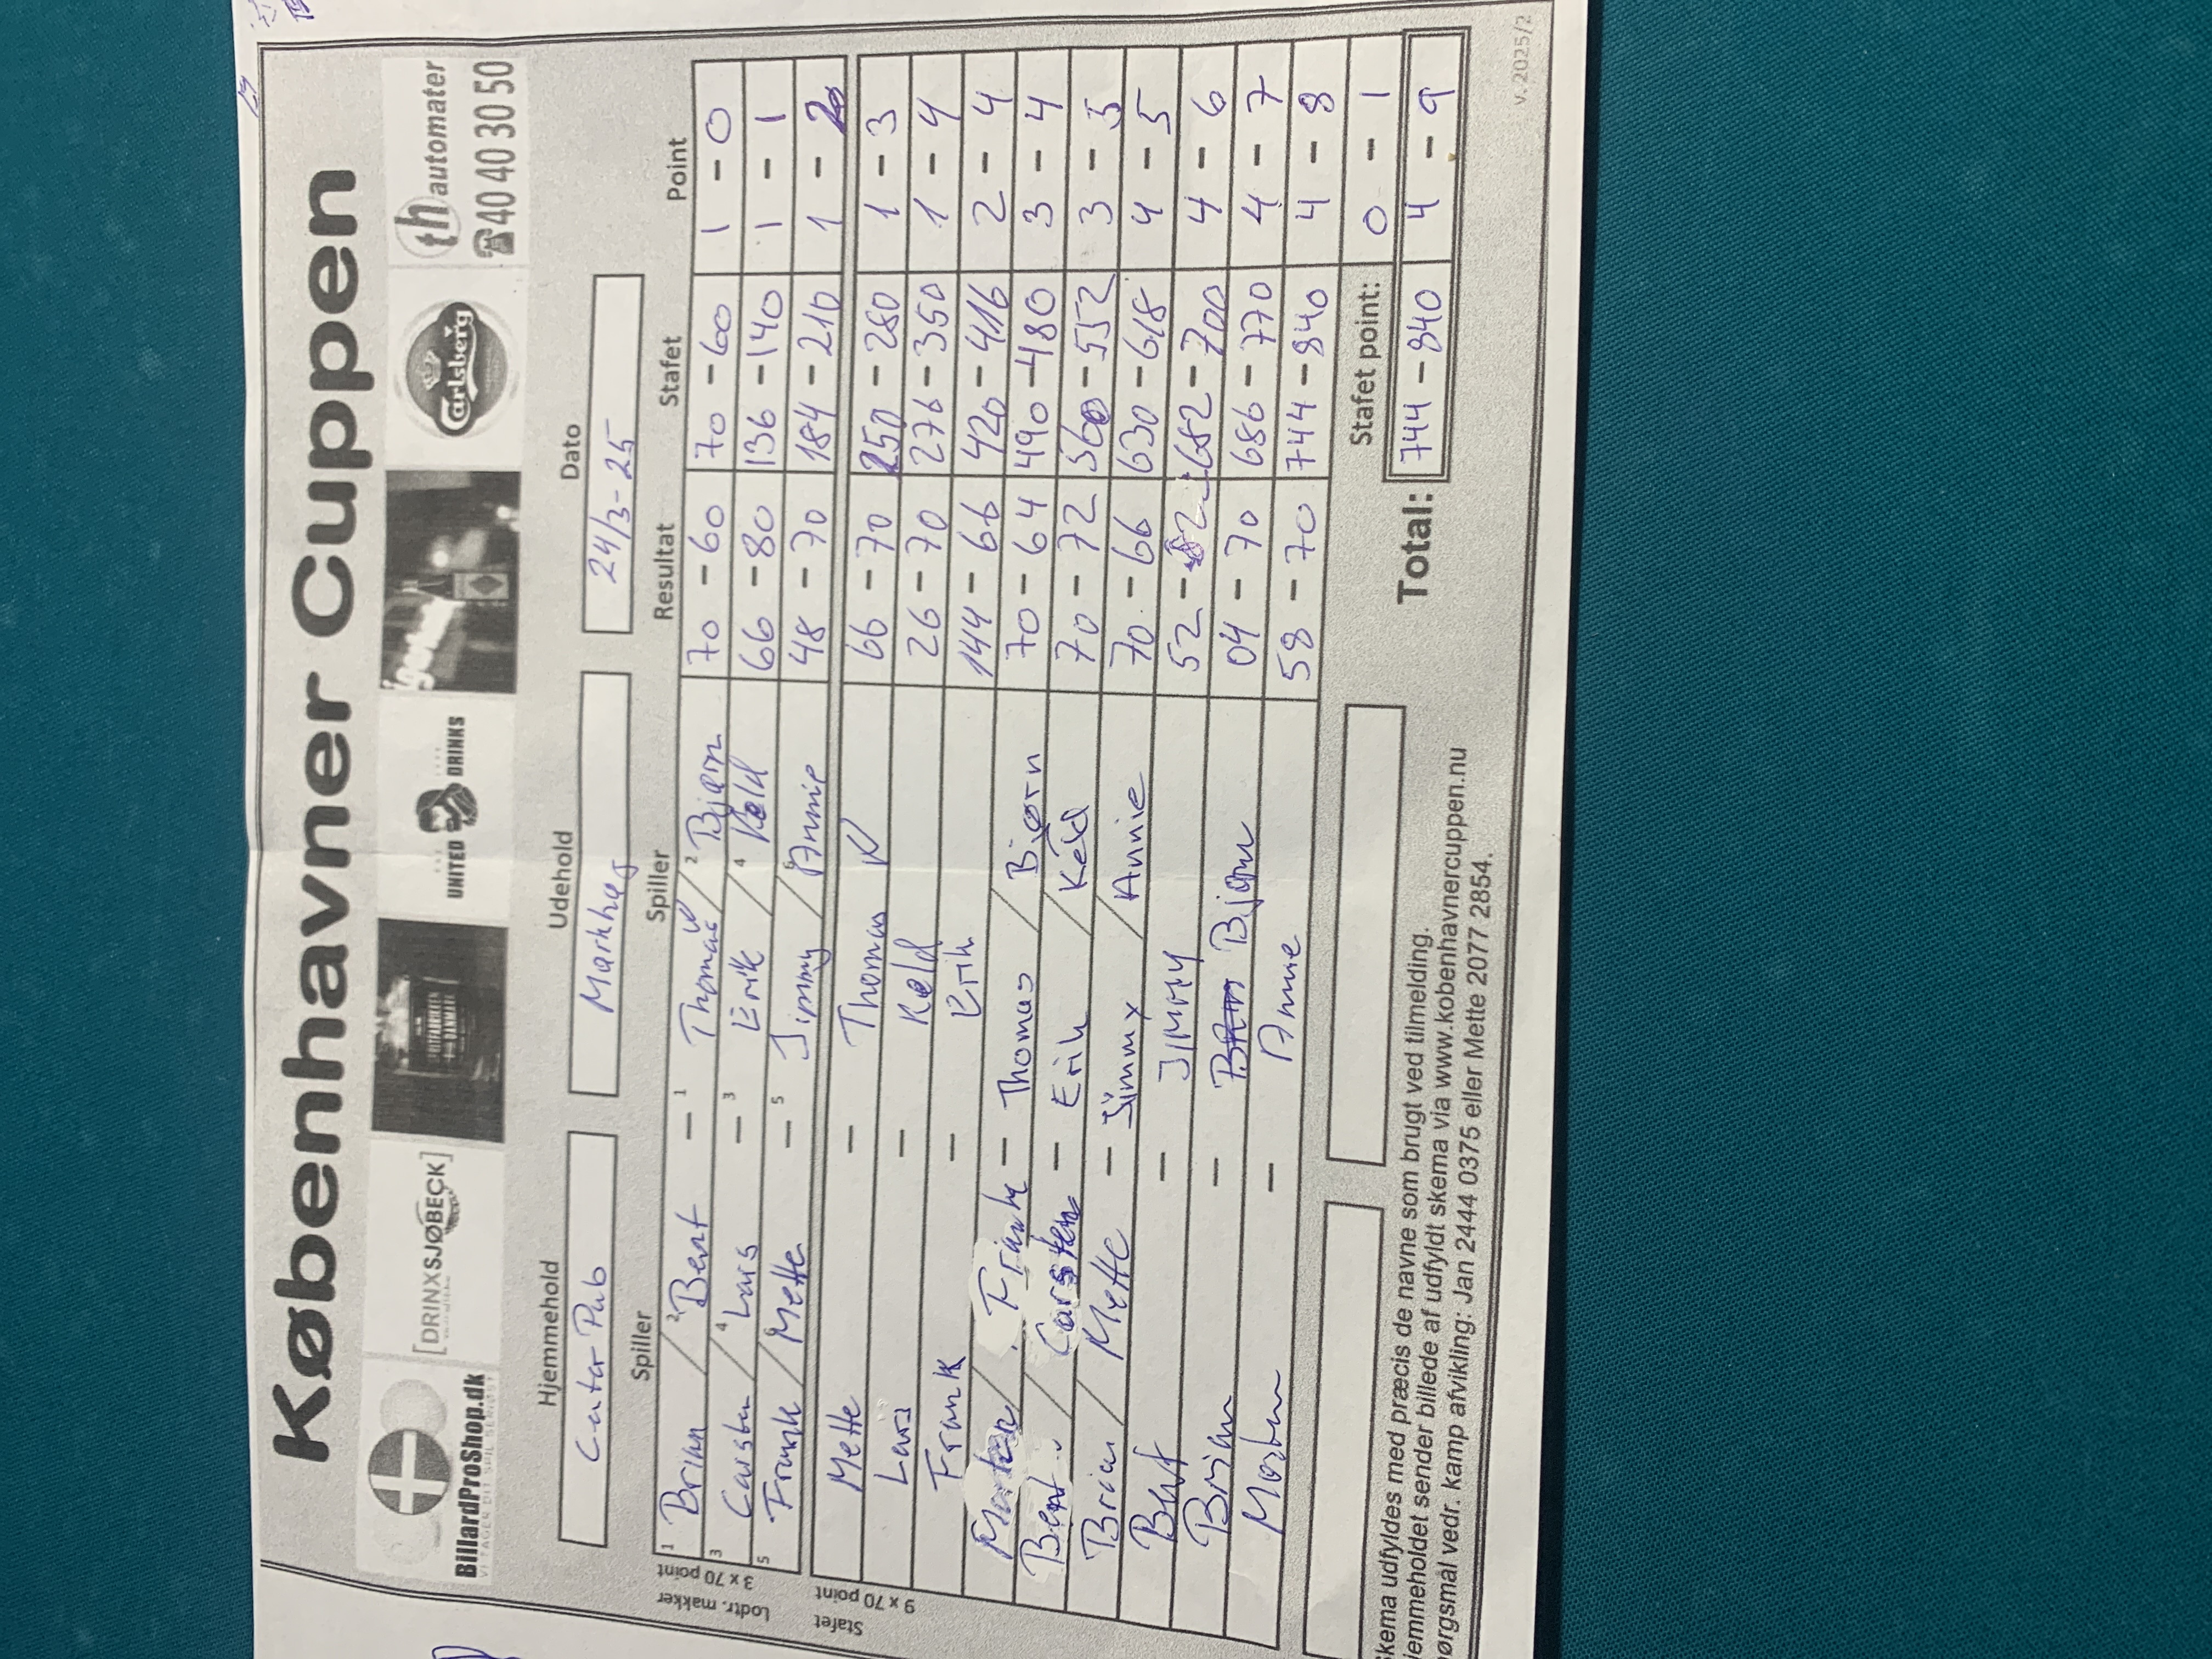 Københavner Cuppen
BillardProShop.dk
[DRINXSJØBECK]
UNITED DRINKS
Carlsberg
th automater
☎40 40 30 50
Hjemmehold Udehold Dato
Center Pub Mørkhøj 24/3-25
Spiller Spiller Resultat Stafet Point
Lodtr. makker
3 x 70 point
1 Brian / 2 Bent – 1 Thomas / 2 Bjørn 70 – 60 70 – 60 1 – 0
3 Carsten / 4 Lars – 3 Erik / 4 Keld 66 – 80 136 – 140 1 – 1
5 Frank / 6 Mette – 5 Jimmy / 6 Annie 48 – 70 184 – 210 1 – 2
Stafet
9 x 70 point
Mette – Thomas K 66 – 70 250 – 280 1 – 3
Lars – Keld 26 – 70 276 – 350 1 – 4
Frank – Erik 144 – 66 420 – 416 2 – 4
Morten / Frank – Thomas / Bjørn 70 – 64 490 – 480 3 – 4
Bent / Carsten – Erik / Keld 70 – 72 560 – 552 3 – 5
Brian / Mette – Jimmy / Annie 70 – 66 630 – 618 4 – 5
Bent – Jimmy 52 – 682 – 700 4 – 6
Brian – Bjørn 04 – 70 686 – 770 4 – 7
Morten – Annie 58 – 70 744 – 840 4 – 8
Stafet point: 0 – 1
Total: 744 – 840 4 – 9
skema udfyldes med præcis de navne som brugt ved tilmelding.
jemmeholdet sender billede af udfyldt skema via www.københavnercuppen.nu
pørgsmål vedr. kamp afvikling: Jan 2444 0375 eller Mette 2077 2854.
v. 2025/2